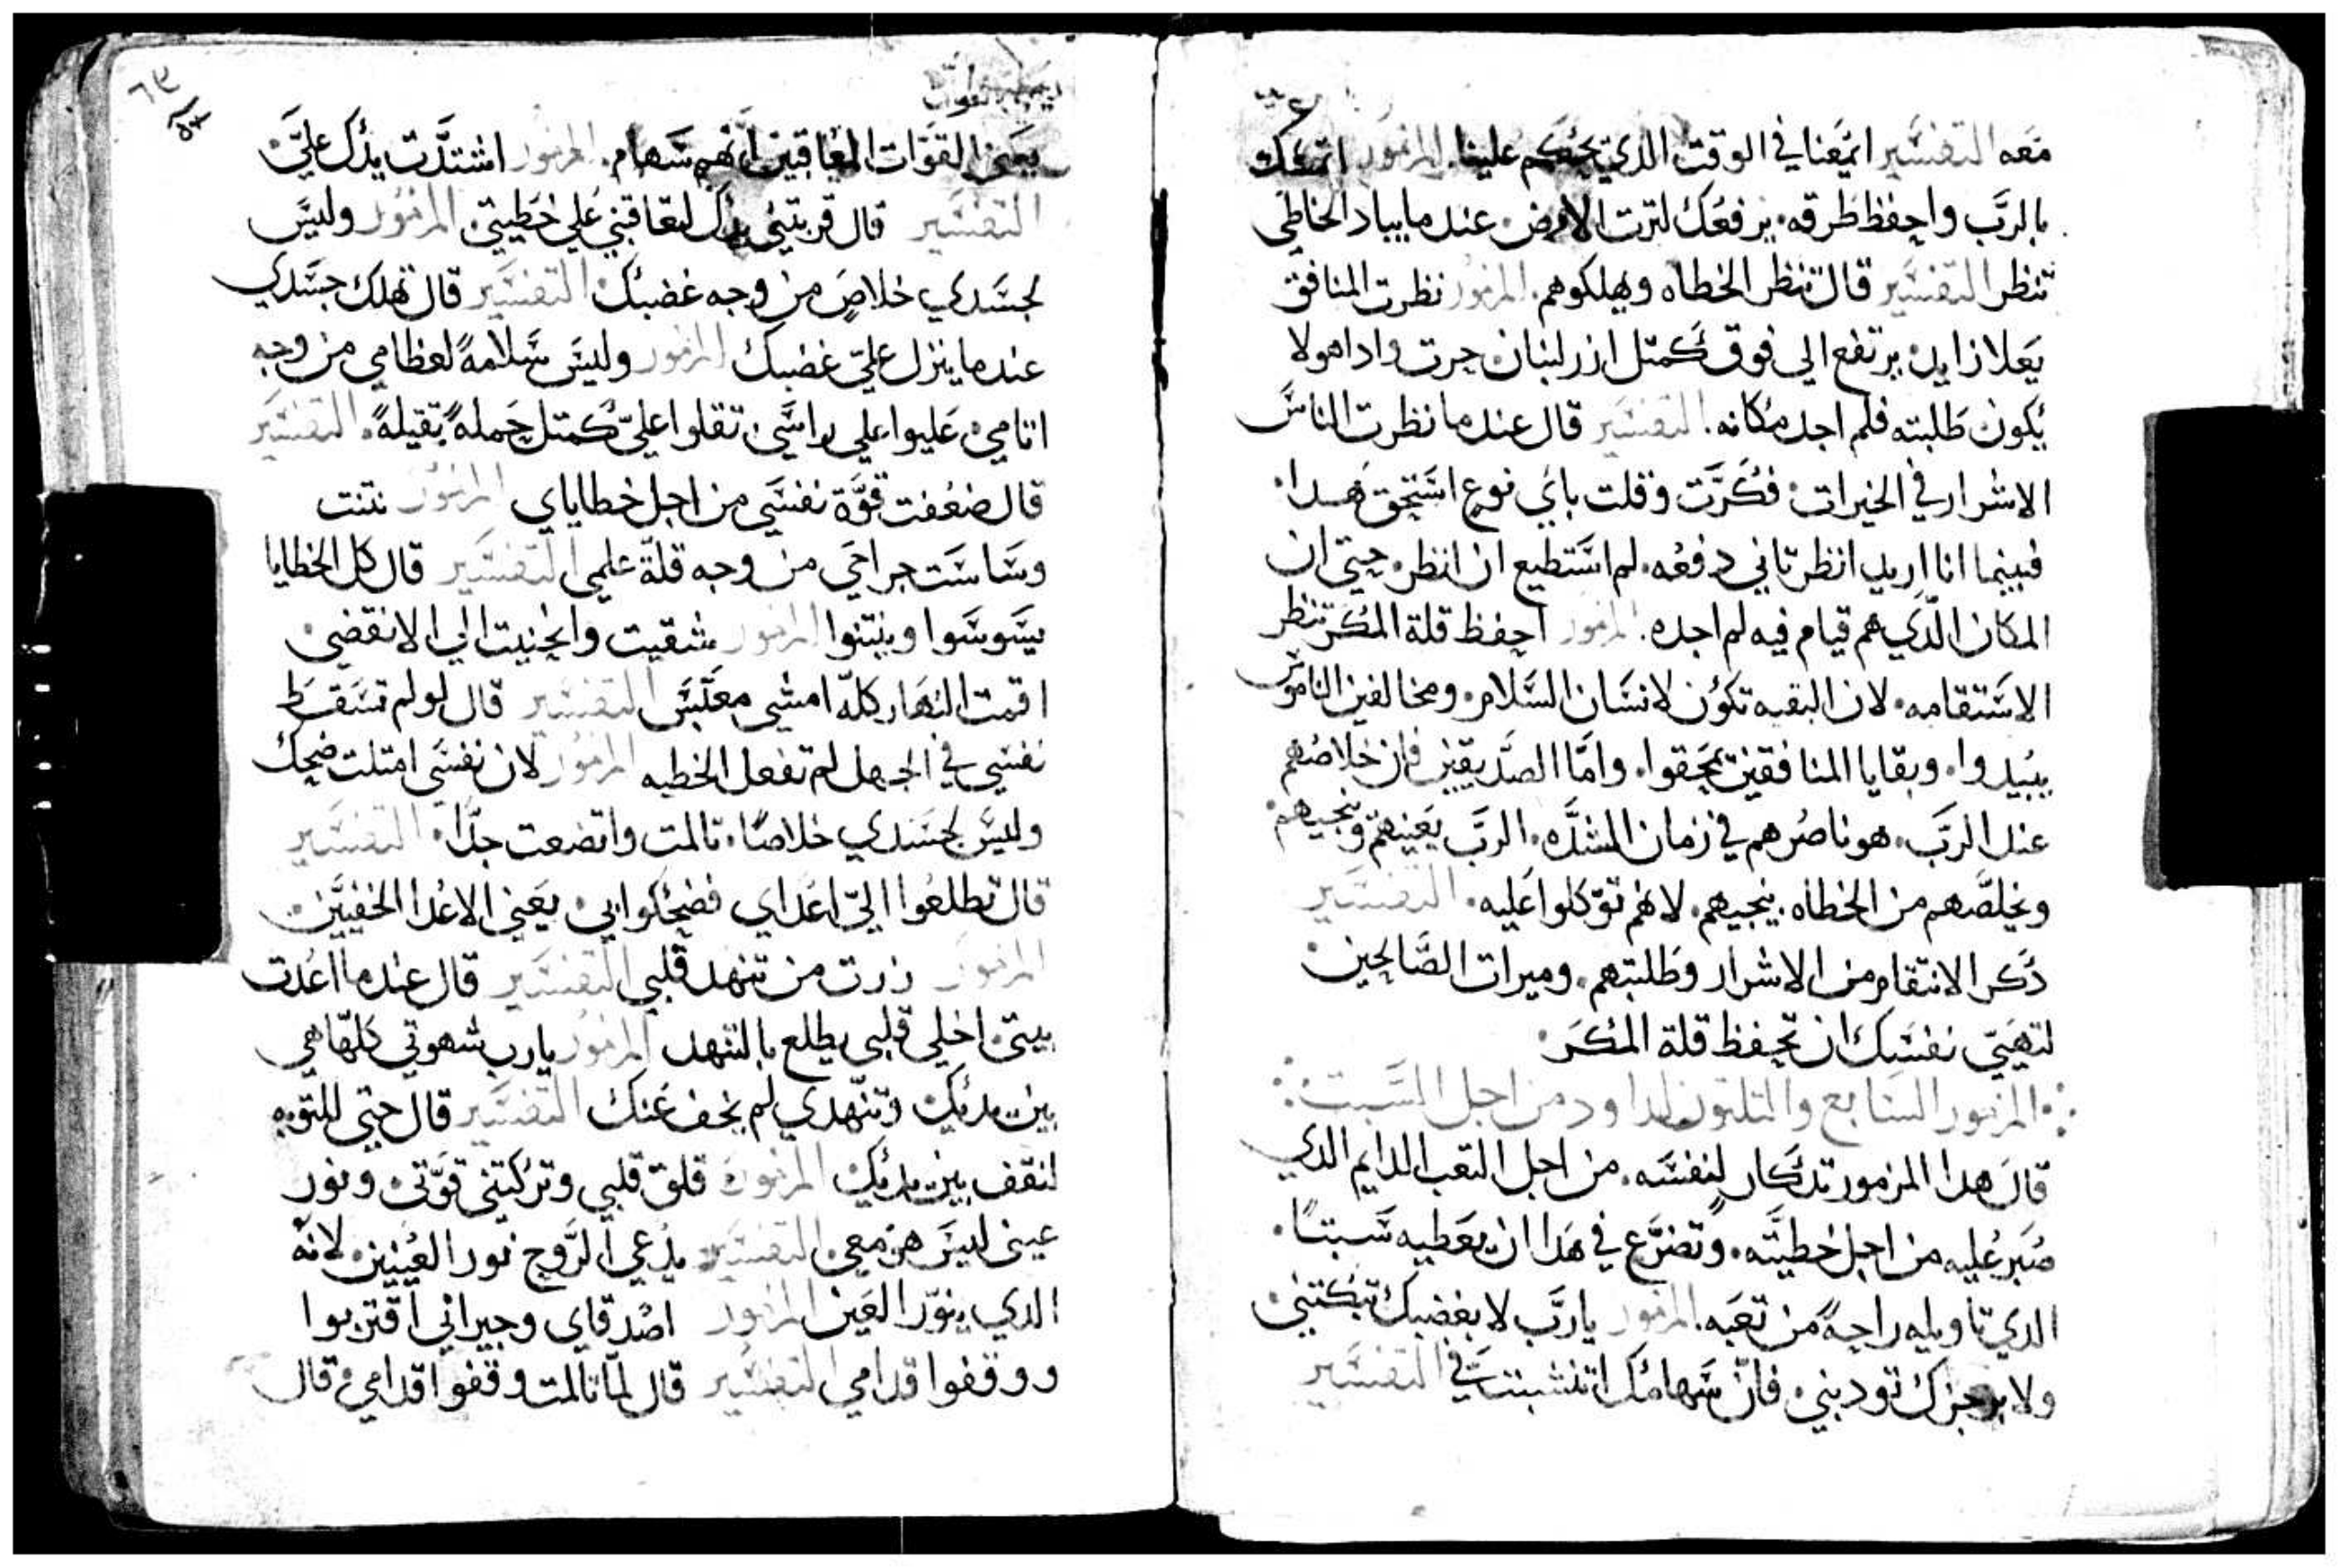 معه التفسير اتمعنا في الوقت الدي يحكم علينا. المزمور اتمعك
بالرَّب واحفظ طرقه. يرفعك لترت الارض. عندما يباد الخاطي
تنظر التفسير قال تنظر الخطاه ويهلكوهم. المزمور نظرت المنافق
يعلا زايد. يرتفع الي فوق كمتل ارز لبنان. جرت واداهولا
يكون طلبته فلم اجد مكانه. التفسير قال عندما نظرت الناس
الاشرار في الخيرات. فكرَّت وقلت باي نوع استحق هدا.
فبينما انا اريد انظر تاني دفعه. لم استطيع ان انظر. حتي ان
المكان الَّدي هم قيام فيه لم اجده. المزمور احفظ قلة المكر تنظر
الاستقامه. لان البقيه تكون لانسان السَّلام. ومخالفين الناموس
يبيدوا. وبقايا المنافقين يمحقوا. وامَّا الصدّيقين فان خلاصهم
عند الرَّب. هو ناصرهم في زمان الشدَّه. الربّ يعينهم وينجيهم
ويخلَّصهم من الخطاه. ينجيهم. لانهم توّكلوا عليه. التفسير
دكر الانتقام من الاشرار وطلبتهم. وميرات الصَّالحين.
لتهيّي نفسك ان تحفظ قلة المكر.
المزمور السابع والتلتون لداود من اجل السبت
قال هدا المزمور تدكار لنفسه. من اجل التعب الدايم الدي
صبر عليه من اجل خطيَّته. وتضرَّع في هدا ان يعطيه سبتًا.
الدي تاويله راحةً من تعبه. المزمور يارَّب لا بغضبك تبكتني.
ولا برجزك تودبني. فانّ سهامك اتنشبت فيَّ التفسير
يعني القوّات المعاقبين انهم سهام. المزمور اشتدَّت يدك عليَّ.
التفسير قال قربتني يدك لتعاقبني علي خطيتي. المزمور وليس
لجسدي خلاص من وجه غضبك. التفسير قال تهلك جسدي
عندما ينزل عليّ غضبك المزمور وليس سلامةً لعظامي من وجه
اتامي. عليوا علي راسي. تقلوا عليّ كمتل حملةً تقيلةً. التفسير
قال ضعفت قوَّة نفسي من اجل خطاياي المزمور نتنت
وساست جراحي من وجه قلَّة علمي التفسير قال كل الخطايا
يسوسوا وينتنوا المزمور شقيت وانحنيت الي الانقضي.
اقمت النهار كلّه امشي معبّس التفسير قال لو لم تسقط
نفسي في الجهل لم تفعل الخطيه المزمور لان نفسي امتلت ضحك
وليس لجسدي خلاصًا. تالمت واتضعت جدًّا. التفسير
قال تطلعوا اليّ اعداي فضحكوا بي. يعني الاعدا الخفيَّين.
المزمور زرت من تنهد قلبي التفسير قال عندما اعدت
بيتي. اخلي قلبي يطلع بالتنهد المزمور يارب شهوتي كلّها هي
بين يديك وتنّهدي لم يخف عنك التفسير قال حتي للتوبه
لنقف بين يديك المزمور قلق قلبي وتركتني قوّتي. ونور
عيني ليس هو معي. التفسير يدعي الرَّوح نور العينين. لانَّه
الدي ينوّر العين المزمور اصدقاي وجيراني اقتربوا
ووقفوا قدامي التفسير قال لمّا تالمت وقفوا قدامي. وقال